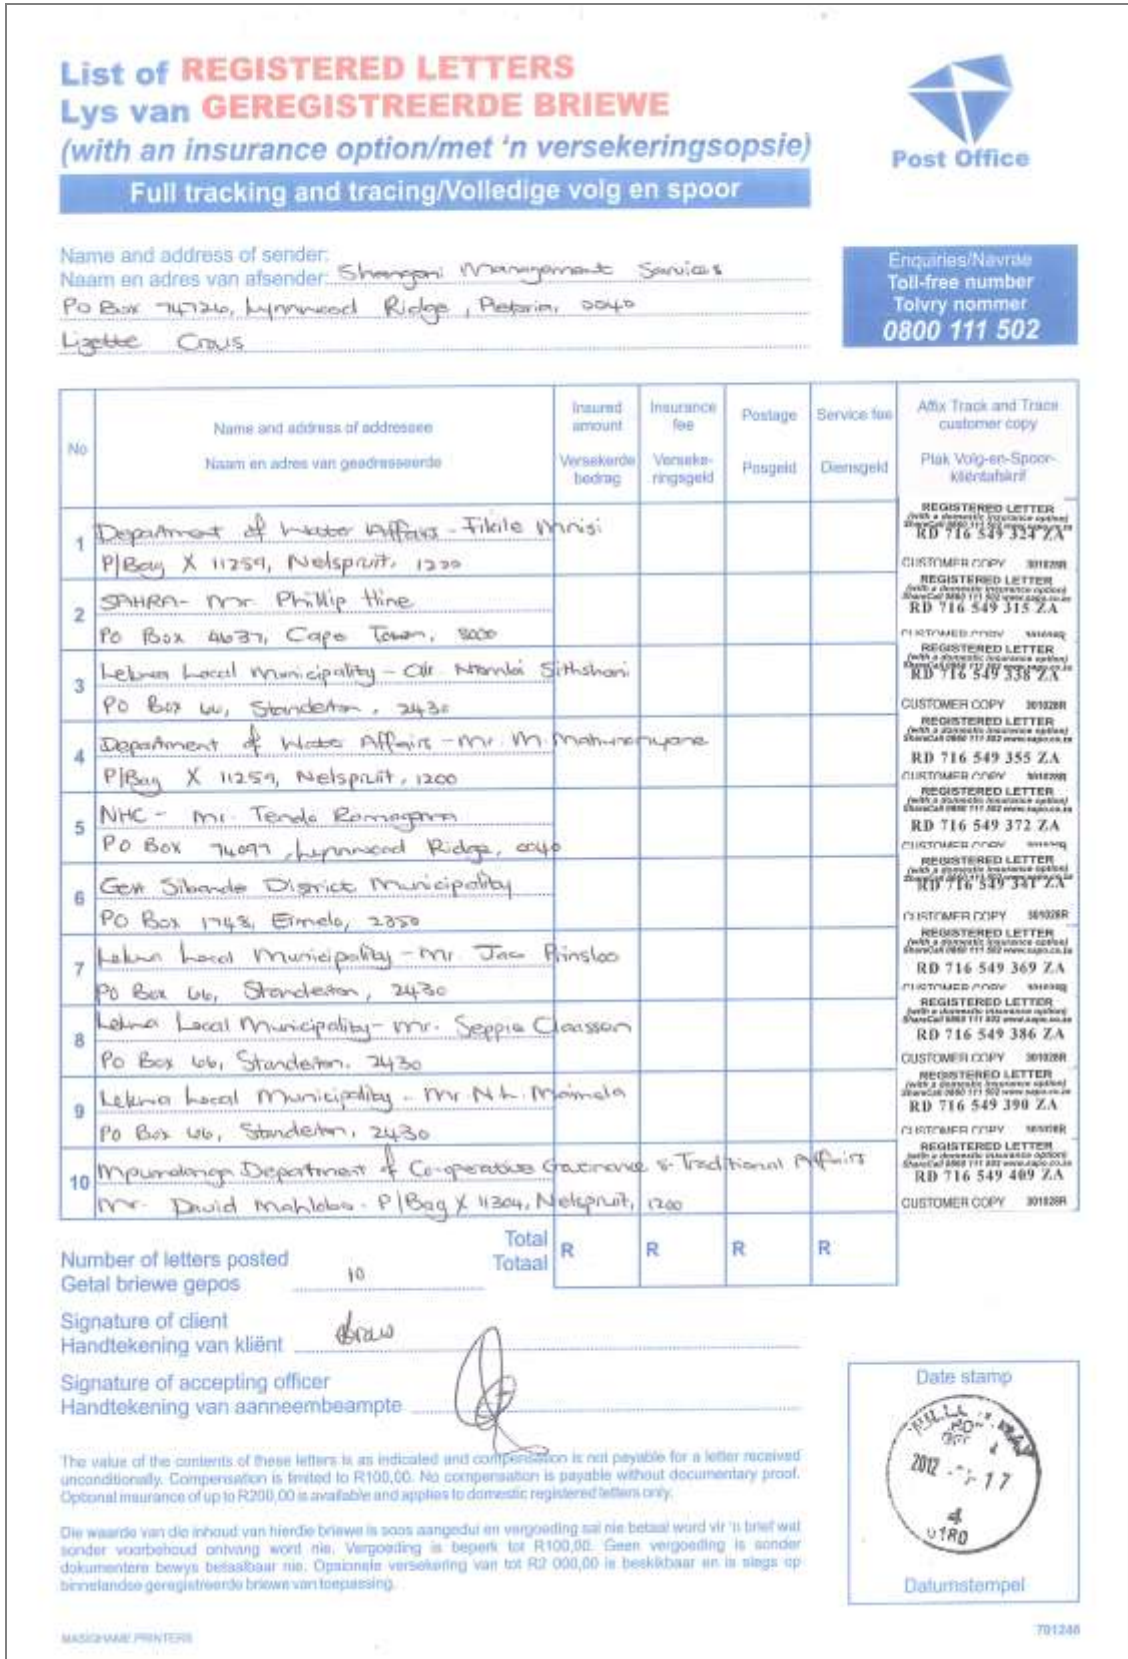 List of REGISTERED LETTERS
Lys van GEREGISTREERDE BRIEWE
(with an insurance option/met 'n versekeringsopsie)
Full tracking and tracing/Volledige volg en spoor
Post Office
Name and address of sender:
Naam en adres van afsender: Shangoni Management Services
PO Box 74726, Lynnwood Ridge, Pretoria, 0040
Lizette Crous
Enquiries/Navrae
Toll-free number
Tolvry nommer
0800 111 502
No
Name and address of addressee
Naam en adres van geadresseerde
Insured amount
Versekerde bedrag
Insurance fee
Verseke-ringsgeld
Postage
Posgeld
Service fee
Diensgeld
Affix Track and Trace customer copy
Plak Volg-en-Spoor-kliëntafskrif
1 Department of Water Affairs - Fikile Mnisi
P/Bag X 11259, Nelspruit, 1200
REGISTERED LETTER
(with a domestic insurance option)
ShareCall 0860 111 502 www.sapo.co.za
RD 716 549 324 ZA
CUSTOMER COPY 301028R
2 SAHRA - Mr. Phillip Hine
Po Box 4637, Cape Town, 8000
REGISTERED LETTER
(with a domestic insurance option)
ShareCall 0860 111 502 www.sapo.co.za
RD 716 549 315 ZA
CUSTOMER COPY 301028R
3 Lekwa Local Municipality - Cllr. Sithshani
PO Box 66, Standerton, 2430
REGISTERED LETTER
(with a domestic insurance option)
ShareCall 0860 111 502 www.sapo.co.za
RD 716 549 338 ZA
CUSTOMER COPY 301028R
4 Department of Water Affairs - Mr. M.
P/Bag X 11259, Nelspruit, 1200
REGISTERED LETTER
(with a domestic insurance option)
ShareCall 0860 111 502 www.sapo.co.za
RD 716 549 355 ZA
CUSTOMER COPY 301028R
5 NHC - Mr. Tendo
PO Box 74097, Lynnwood Ridge, 0040
REGISTERED LETTER
(with a domestic insurance option)
ShareCall 0860 111 502 www.sapo.co.za
RD 716 549 372 ZA
CUSTOMER COPY
6 Gert Sibande District Municipality
PO Box 1748, Ermelo, 2350
REGISTERED LETTER
(with a domestic insurance option)
ShareCall 0860 111 502 www.sapo.co.za
RD 716 549 341 ZA
CUSTOMER COPY 301028R
7 Lekwa Local Municipality - Mr. Jaco Prinsloo
PO Box 66, Standerton, 2430
REGISTERED LETTER
(with a domestic insurance option)
ShareCall 0860 111 502 www.sapo.co.za
RD 716 549 369 ZA
CUSTOMER COPY 301028R
8 Lekwa Local Municipality - Mr. Seppie Claassen
PO Box 66, Standerton, 2430
REGISTERED LETTER
(with a domestic insurance option)
ShareCall 0860 111 502 www.sapo.co.za
RD 716 549 386 ZA
CUSTOMER COPY 301028R
9 Lekwa Local Municipality - Mr. N.L. Maimela
PO Box 66, Standerton, 2430
REGISTERED LETTER
(with a domestic insurance option)
ShareCall 0860 111 502 www.sapo.co.za
RD 716 549 390 ZA
CUSTOMER COPY 301028R
10 Mpumalanga Department of Co-operative Governance & Traditional Affairs
Mr. David Mahlobo - P/Bag X 11304, Nelspruit, 1200
REGISTERED LETTER
(with a domestic insurance option)
ShareCall 0860 111 502 www.sapo.co.za
RD 716 549 409 ZA
CUSTOMER COPY 301028R
Number of letters posted
Getal briewe gepos 10
Total
Totaal
R R R R
Signature of client
Handtekening van kliënt
Signature of accepting officer
Handtekening van aanneembeampte
The value of the contents of these letters is as indicated and compensation is not payable for a letter received
unconditionally. Compensation is limited to R100,00. No compensation is payable without documentary proof.
Optional insurance of up to R200,00 is available and applies to domestic registered letters only.
Die waarde van die inhoud van hierdie briewe is soos aangedui en vergoeding sal nie betaal word vir 'n brief wat
sonder voorbehoud ontvang word nie. Vergoeding is beperk tot R100,00. Geen vergoeding is sonder
dokumentere bewys betaalbaar nie. Opsionele versekering van tot R2 000,00 is beskikbaar en is slegs op
binnelandse geregistreerde briewe van toepassing.
Date stamp
2012 17
4
0180
Datumstempel
MASIGHAME PRINTERS
701248